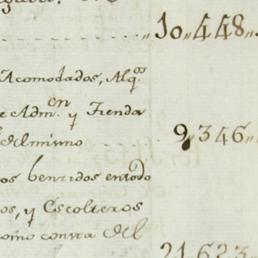 10,,448,,
Acomodados, Alq.os
e Adm.on y Tienda
del mismo 9,,346,,
os benzidos en todo
os, y Escolteros
como consta del
21,623,,